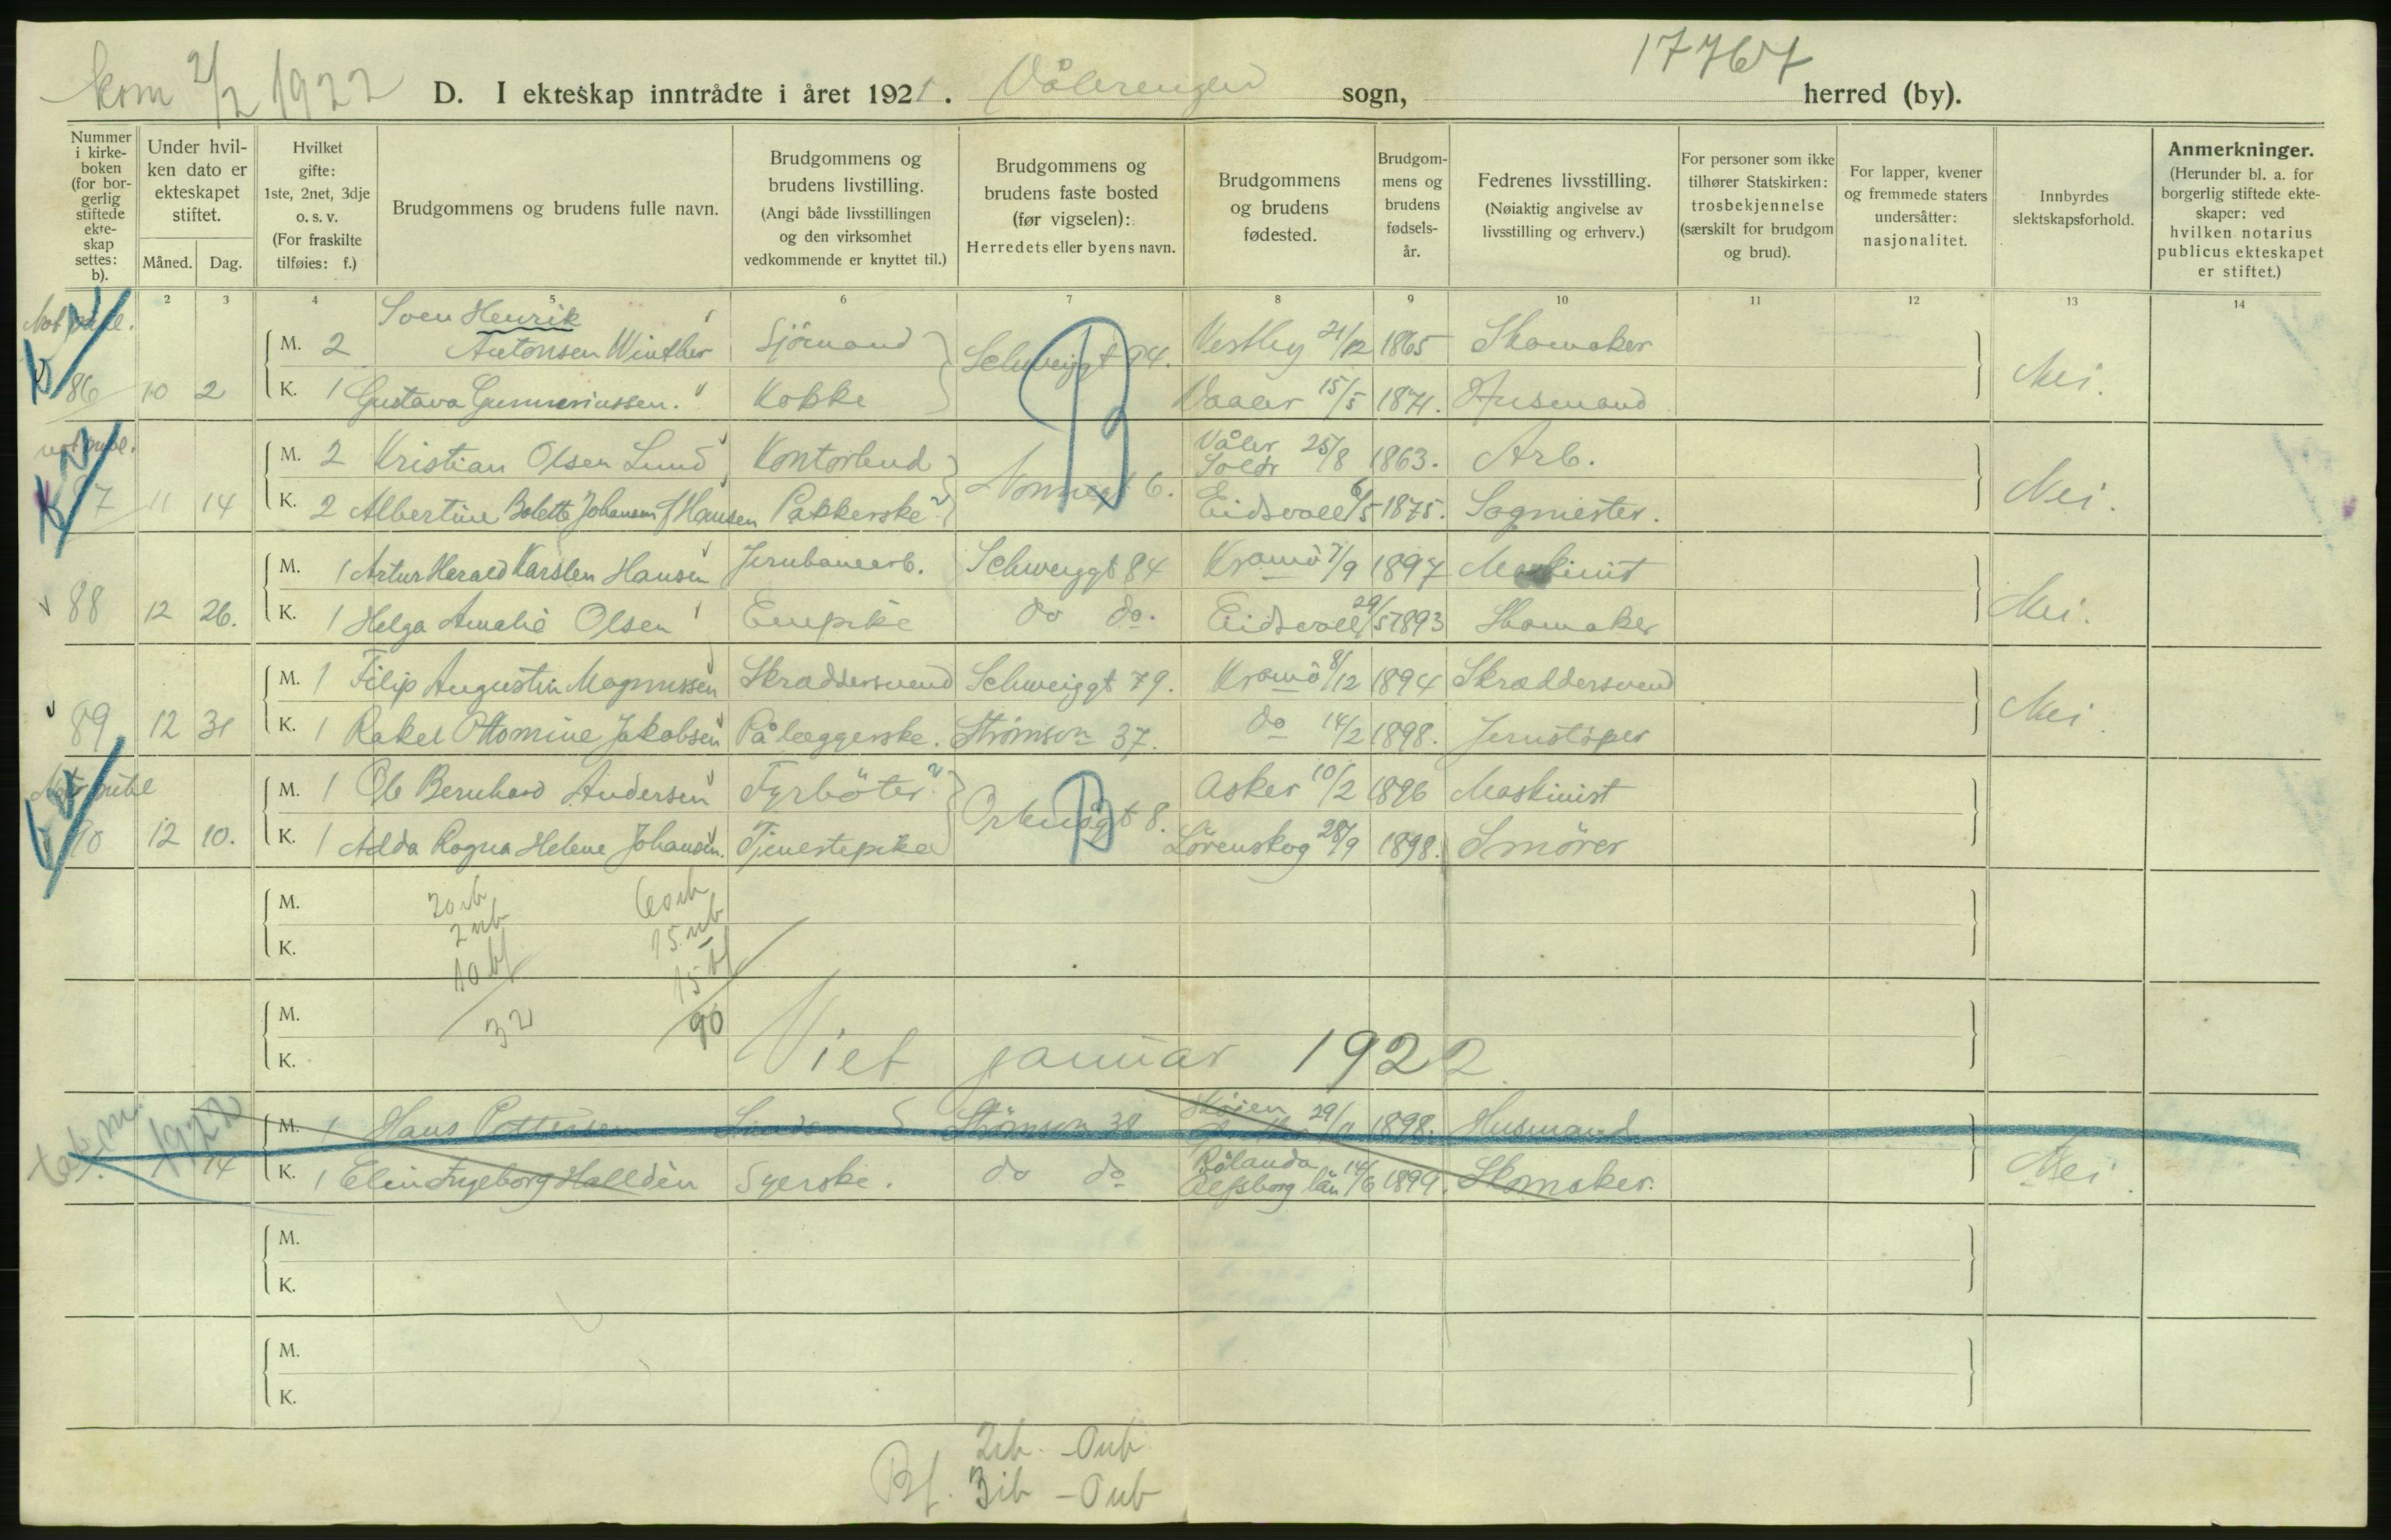 kom 2/2 1922
D. I ekteskap inntrådte i året 1921. Vålerengen sogn, herred (by).
17767
Nummer i kirke-boken (for bor-gerlig stiftede ekte-skap settes: b).
Under hvil-ken dato er ekteskapet stiftet.
Måned. Dag.
Hvilket gifte: 1ste, 2net, 3dje o. s. v. (For fraskilte tilføies: f.)
Brudgommens og brudens fulle navn.
Brudgommens og brudens livstilling. (Angi både livsstillingen og den virksomhet vedkommende er knyttet til.)
Brudgommens og brudens faste bosted (før vigselen): Herredets eller byens navn.
Brudgommens og brudens fødested.
Brudgom-mens og brudens fødsels-år.
Fedrenes livsstilling. (Nøiaktig angivelse av livsstilling og erhverv.)
For personer som ikke tilhører Statskirken: trosbekjennelse (særskilt for brudgom og brud).
For lapper, kvener og fremmede staters undersåtter: nasjonalitet.
Innbyrdes slektskapsforhold.
Anmerkninger. (Herunder bl. a. for borgerlig stiftede ekte-skaper: ved hvilken notarius publicus ekteskapet er stiftet.)
2 3 4 5 6 7 8 9 10 11 12 13 14
Not publ.
Sven Henrik
M. 2 Antonsen Winther Sjömand Schweiggt 94. Vestby 21/12 1865 Skomaker
86 10 2 K. 1 Gustava Gunneriussen. Kokke Vaaler 15/5 1871. Husmand Nei.
not publ.
M. 2 Kristian Olsen Lund Kontorbud Nonnegt 6. Våler Solör 25/8 1863. Arb.
87 11 14 K. 2 Albertine Bolette Johansen f Hansen Pakkerske Eidsvoll 6/5 1875. Sagmester. Nei.
M. 1 Artur Harald Karsten Hansen Jernbanearb. Schweiggt 84 Kramö 7/9 1897 Maskinist
88 12 26. K. 1 Helga Amalie Olsen Enepike do do. Eidsvoll 29/5 1893 Skomaker Nei.
M. 1 Filip Augustin Magnussen Skraddersvend Schweiggt 79. Kramö 8/12 1894 Skræddersvend
89 12 31 K. 1 Rakel Ottomine Jakobsen Pålæggerske. Strömsvn 37. do 14/2 1898. Jernstöper Nei
Not publ
M. 1 Ole Bernhard Andersen Fyrböter Orknögt 8. Asker 10/2 1896 Maskinist
90 12 10. K. 1 Adda Ragna Helene Johansen. Tjenestepike Lörenskog 28/9 1898. Smörer
M. 20 ib 60 ib
2 ub 15 ub
K. 10 bf 15 bf
M. 32 90
K. Viet januar 1922
1922
M. 1 Hans Pettersen Strömsvn 38 Sköien 29/11 1898. Husmand
14 K. 1 Elin Ingeborg Halldèn Syerske. do do Rölanda Elfsborg län 14/6 1899. Skomaker. Nei.
M.
K.
M.
K.
2 ib. - 0 ub
Bf. 3 ib - 0 ub